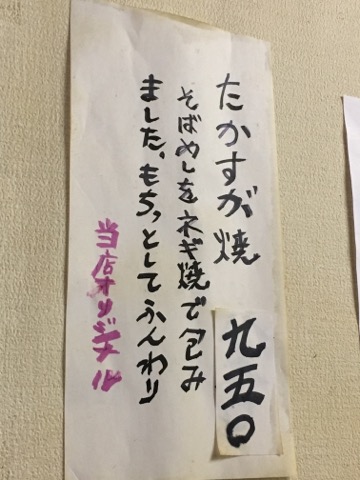 たかすが焼
九五〇
そばめしをネギ焼で包み
ました、もちっとしてふんわり
当店オリジナル